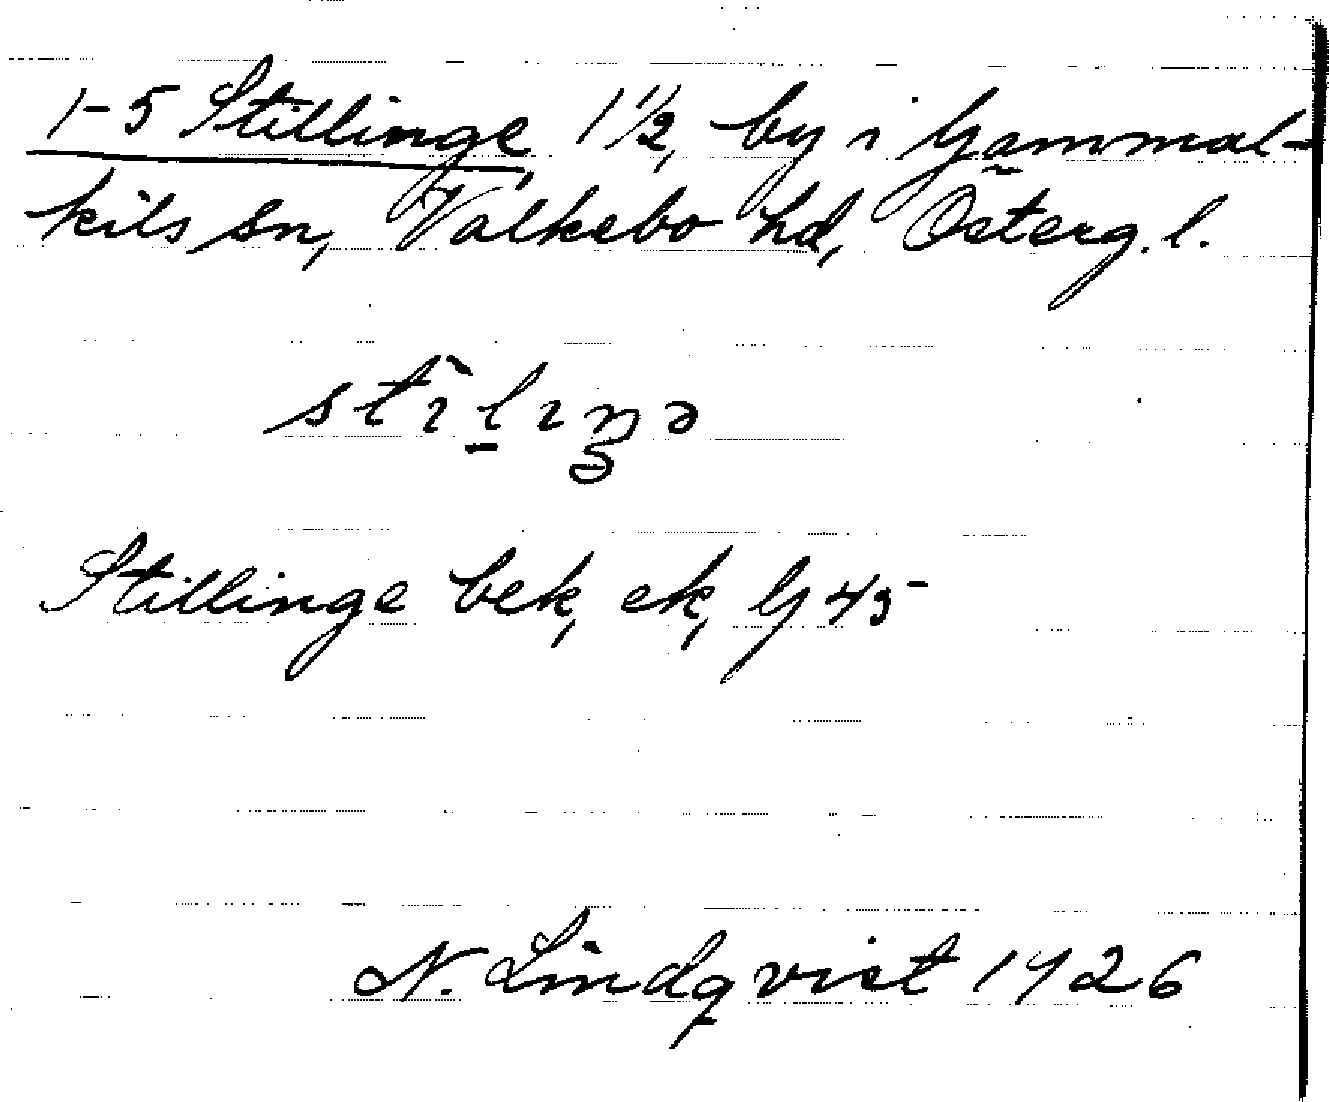 1-5 Stillinge, 1 1/2, by i Gammal-
kils sn, Valkebo hd, Österg. l.
stìl̠ıŋə
Stillinge bek, ek, G 45
N. Lindqvist 1926